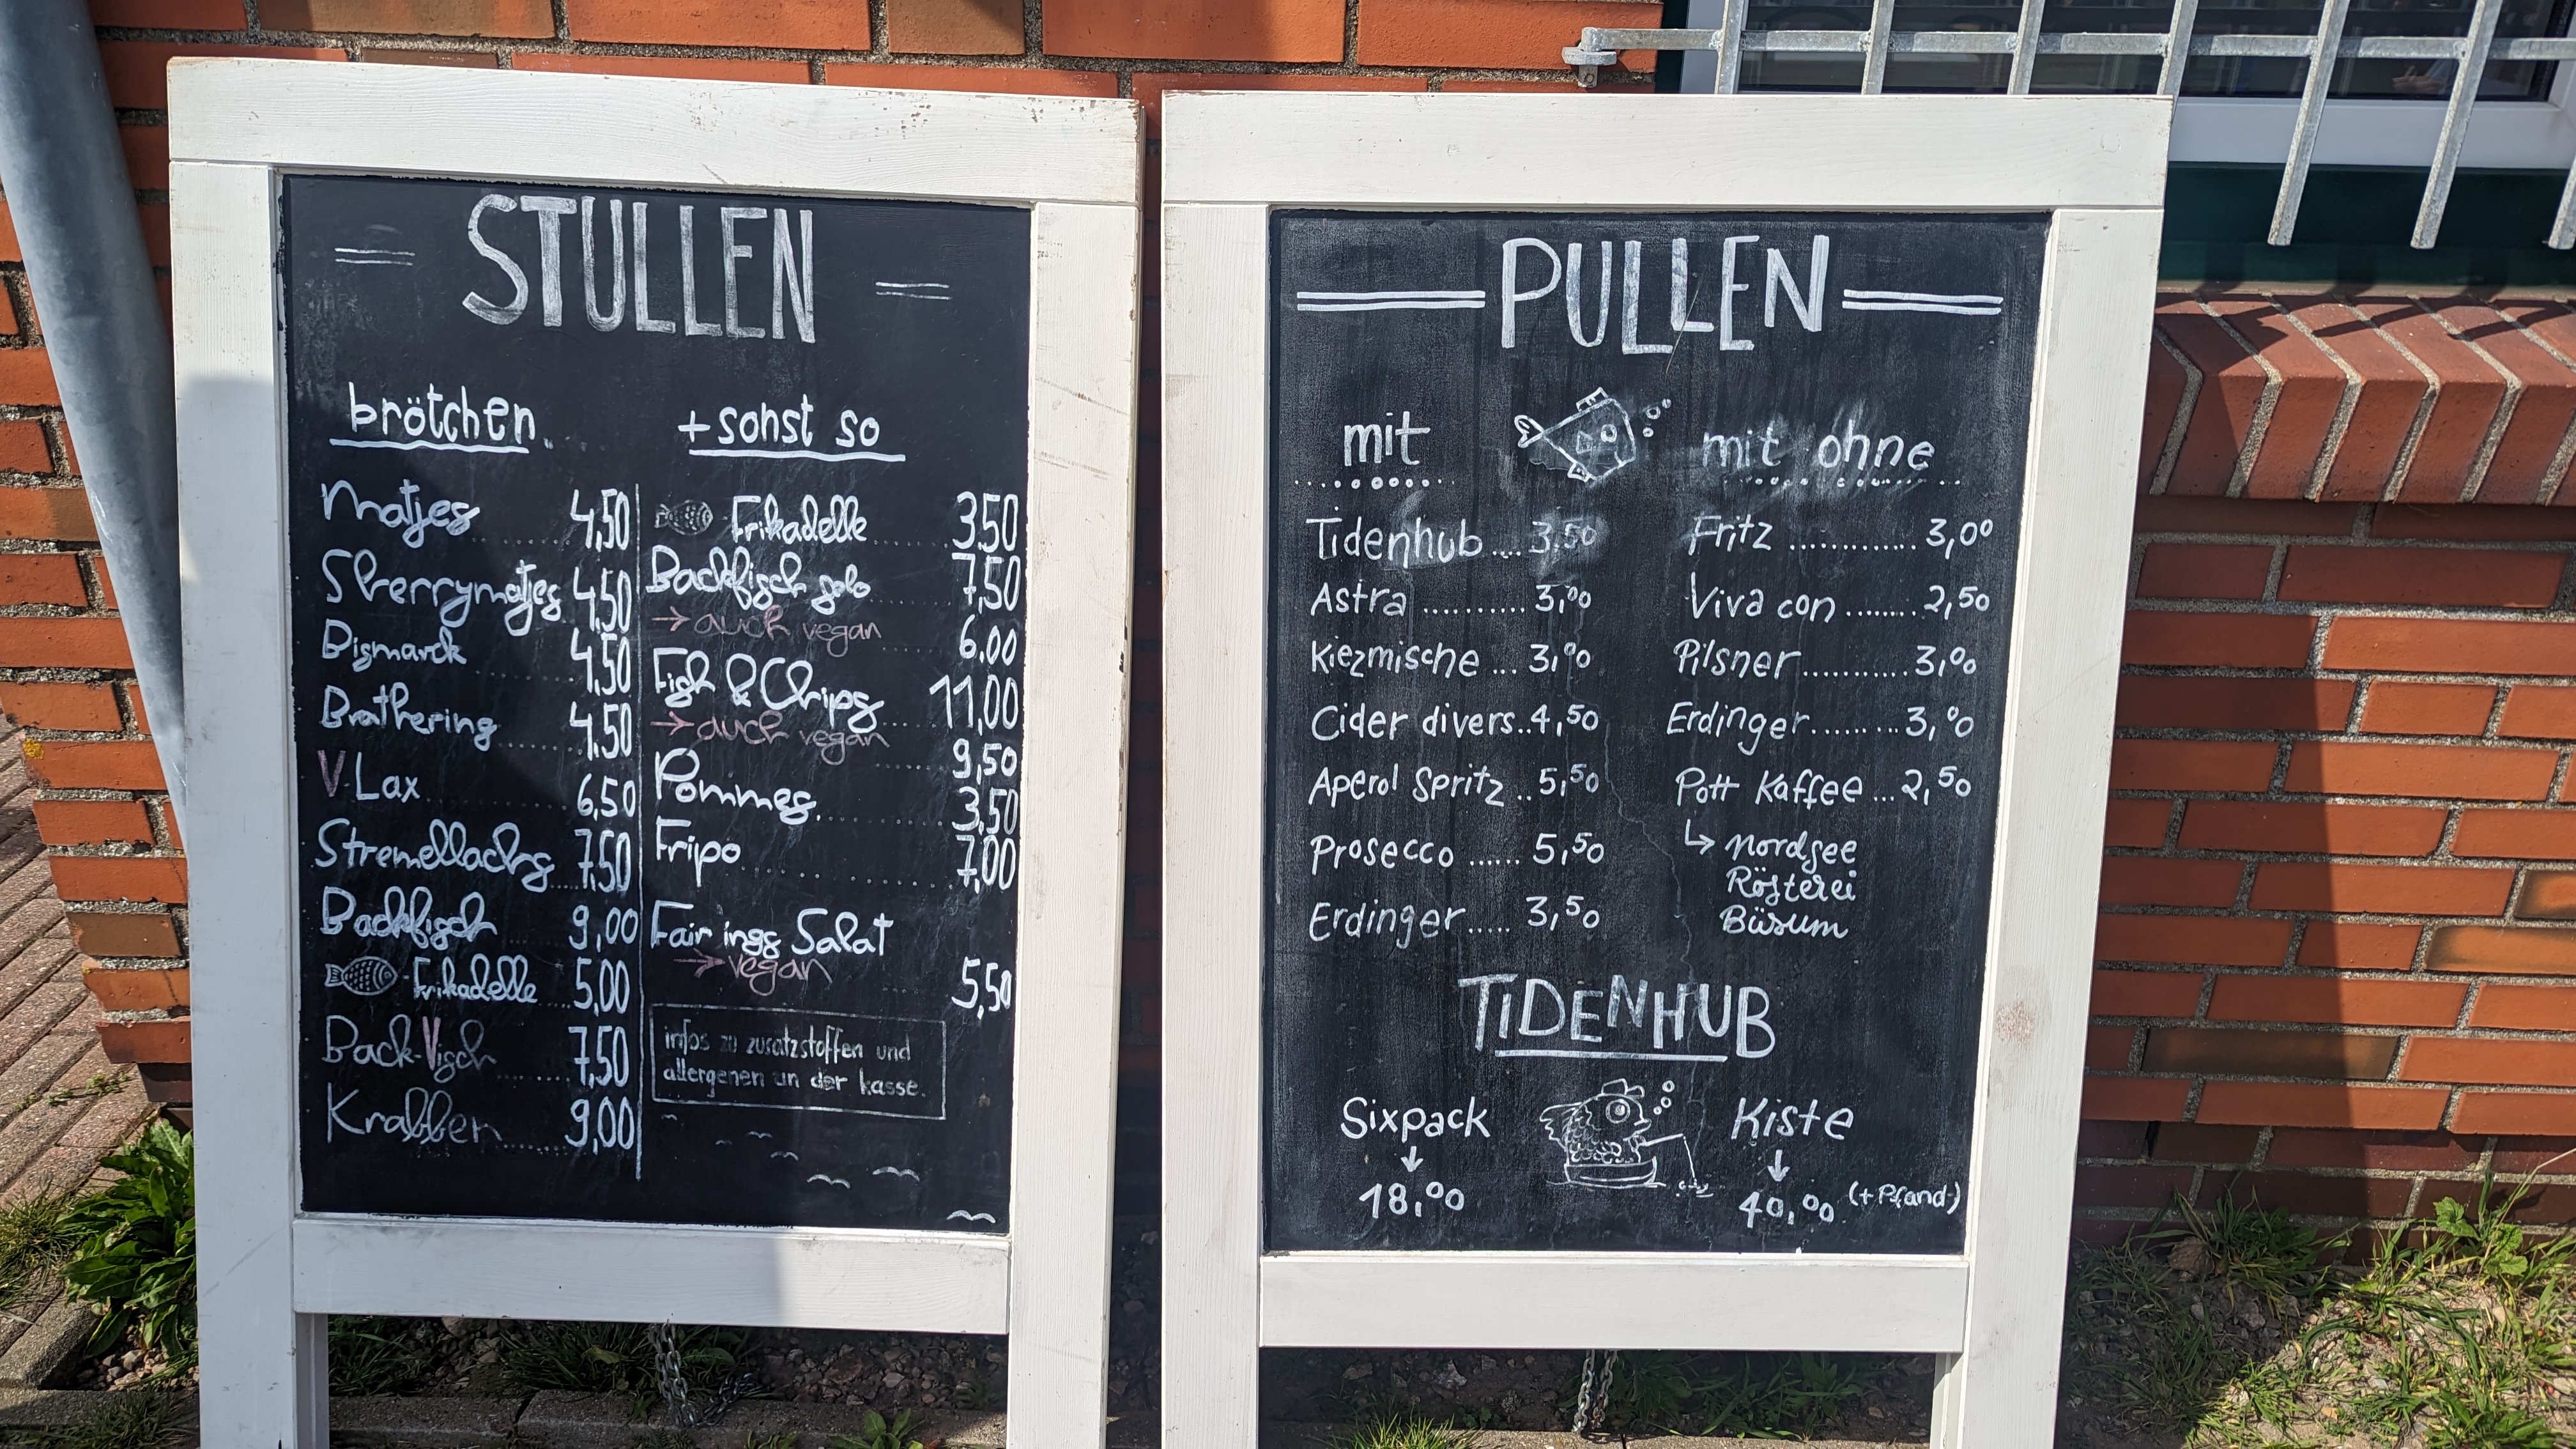 STULLEN
brötchen
Matjes 4,50
Sherrymatjes 4,50
Bismarck 4,50
Brathering 4,50
V-Lax 6,50
Stremellachs 7,50
Backfisch 9,00
Frikadelle 5,00
Back-Visch 7,50
Krabben 9,00
+ sonst so
Frikadelle 3,50
Backfisch solo 7,50
→ auch vegan 6,00
Fish & Chips 11,00
→ auch vegan 9,50
Pommes 3,50
Fripo 7,00
Fair ings Salat
→ vegan 5,50
infos zu zusatzstoffen und
allergenen an der kasse.
PULLEN
mit
Tidenhub.... 3,50
Astra .......... 3,00
Kiezmische ... 3,00
Cider divers.. 4,50
Aperol Spritz .. 5,50
Prosecco ...... 5,50
Erdinger ..... 3,50
mit ohne
Fritz ............. 3,00
Viva con ........ 2,50
Pilsner ........... 3,00
Erdinger......... 3,00
Pott Kaffee ... 2,50
↳ Nordsee
Rösterei
Büsum
TIDENHUB
Sixpack
↓
18,00
Kiste
↓
40,00 (+Pfand)